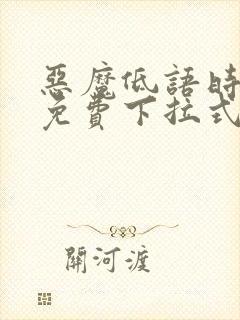 惡魔低語時
免費下拉式
關河渡